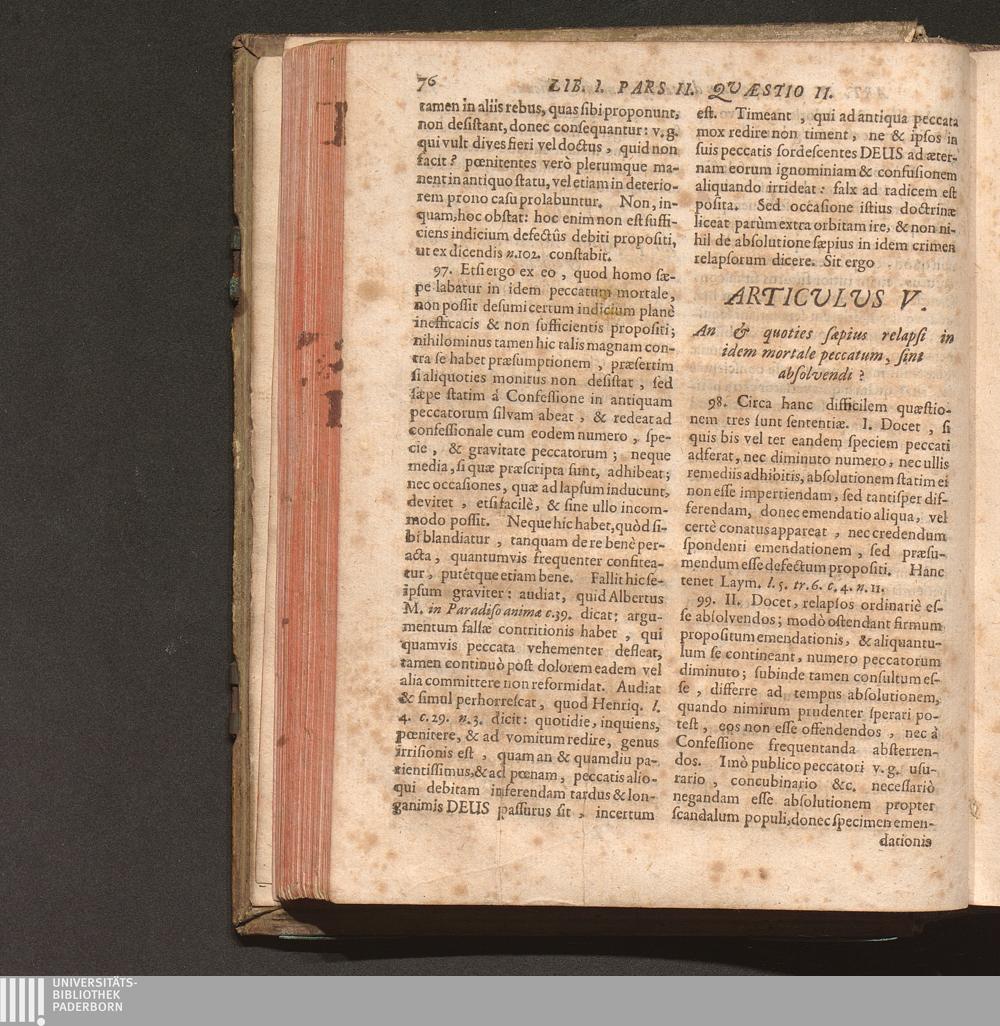 76 LIB. I. PARS II. QVÆSTIO II.
tamen in aliis rebus, quas sibi proponunt,
non desistant, donec consequantur: v.g.
qui vult dives fieri vel doctus, quid non
facit? pœnitentes verò plerumque ma-
nent in antiquo statu, vel etiam in deterio-
rem prono casu prolabuntur. Non, in-
quam, hoc obstat: hoc enim non est suffi-
ciens indicium defectûs debiti propositi,
ut ex dicendis n.102. constabit.
97. Etsi ergo ex eo, quod homo sæ-
pe labatur in idem peccatum mortale,
non possit desumi certum indicium planè
inefficacis & non sufficientis propositi;
nihilominus tamen hic talis magnam con-
tra se habet præsumptionem, præsertim
si aliquoties monitus non desistat, sed
sæpe statim á Confessione in antiquam
peccatorum silvam abeat, & redeat ad
confessionale cum eodem numero, spe-
cie, & gravitate peccatorum; neque
media, si quæ præscripta sunt, adhibeat;
nec occasiones, quæ ad lapsum inducunt,
devitet, etsi facilè, & sine ullo incom-
modo possit. Neque hic habet, quòd si-
bi blandiatur, tanquam de re benè per-
acta, quantumvis frequenter confitea-
tur, putétque etiam bene. Fallit hic se-
ipsum graviter: audiat, quid Albertus
M. in Paradiso animæ c.39. dicat: argu-
mentum falsæ contritionis habet, qui
quamvis peccata vehementer defleat,
tamen continuò post dolorem eadem vel
alia committere non reformidat. Audiat
& simul perhorrescat, quod Henriq. l.
4. c.29. n.3. dicit: quotidie, inquiens,
pœnitere, & ad vomitum redire, genus
irrisionis est, quam an & quamdiu pa-
tientissimus, & ad pœnam, peccatis alio-
qui debitam inferendam tardus & lon-
ganimis DEUS passurus sit, incertum
est. Timeant, qui ad antiqua peccata
mox redire non timent, ne & ipsos in
suis peccatis sordescentes DEUS ad æter-
nam eorum ignominiam & confusionem
aliquando irrideat: falx ad radicem est
posita. Sed occasione istius doctrinæ
liceat parùm extra orbitam ire, & non ni-
hil de absolutione sæpius in idem crimen
relapsorum dicere. Sit ergo
ARTICVLVS V.
An & quoties sæpius relapsi in
idem mortale peccatum, sint
absolvendi?
98. Circa hanc difficilem quæstio-
nem tres sunt sententiæ. I. Docet, si
quis bis vel ter eandem speciem peccati
adferat, nec diminuto numero, nec ullis
remediis adhibitis, absolutionem statim ei
non esse impertiendam, sed tantisper dif-
ferendam, donec emendatio aliqua, vel
certè conatus appareat, nec credendum
spondenti emendationem, sed præsu-
mendum esse defectum propositi. Hanc
tenet Laym. l.5. tr.6. c.4. n.11.
99. II. Docet, relapsos ordinariè es-
se absolvendos; modò ostendant firmum
propositum emendationis, & aliquantu-
lum se contineant, numero peccatorum
diminuto; subinde tamen consultum es-
se, differre ad tempus absolutionem,
quando nimirum prudenter sperari po-
test, eos non esse offendendos, nec á
Confessione frequentanda absterren-
dos. Imò publico peccatori v.g. usu-
rario, concubinario &c. necessariò
negandam esse absolutionem propter
scandalum populi, donec specimen emen-
dationis
UNIVERSITÄTS-
BIBLIOTHEK
PADERBORN